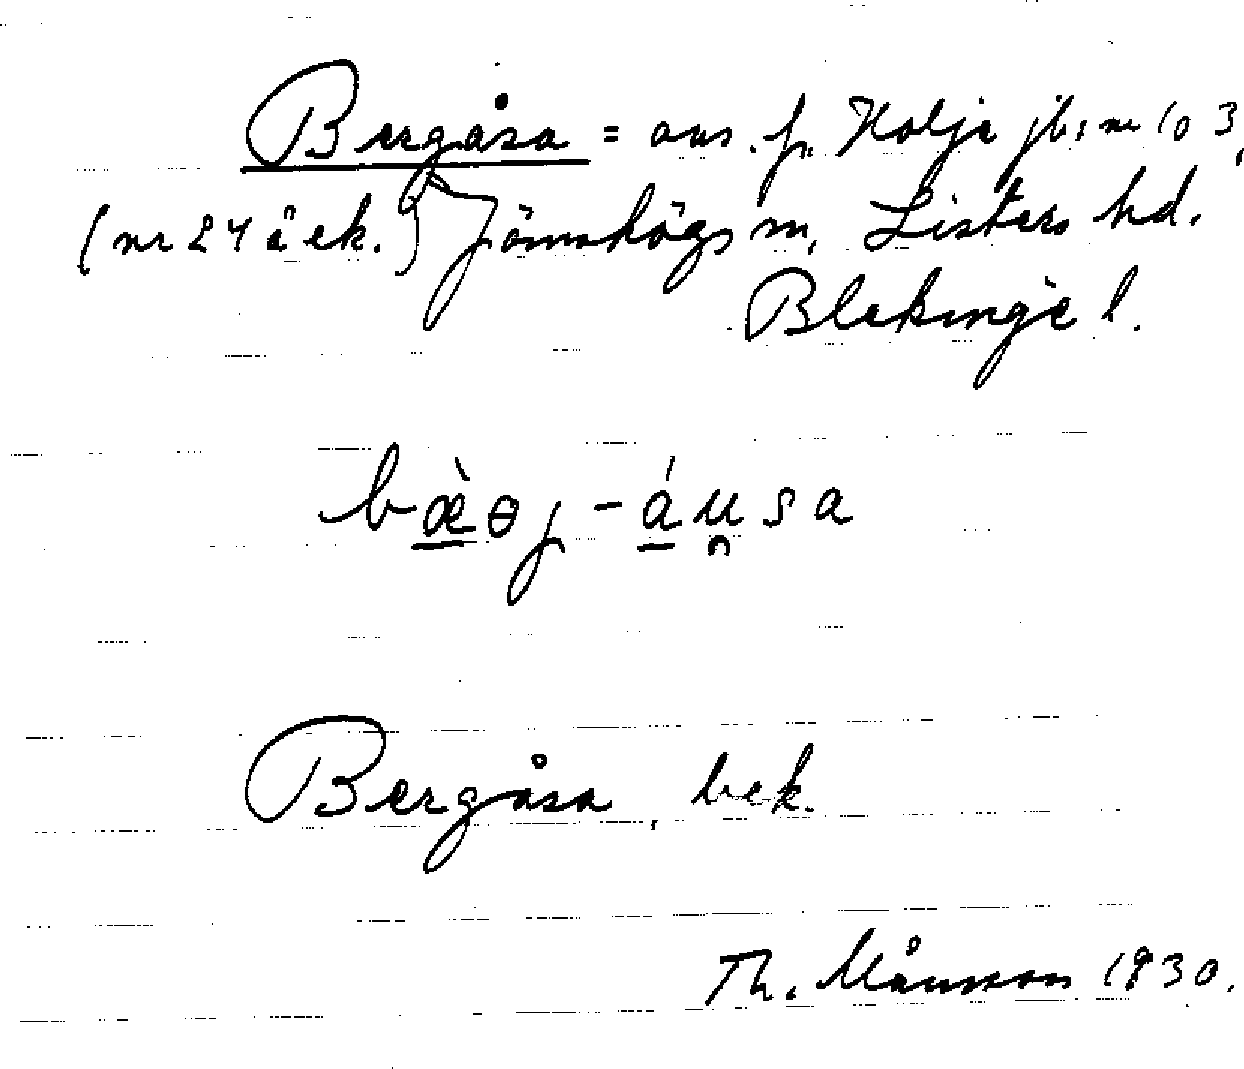 Bergåsa = avs. fr. Holje jb, nr 103,
(nr 24 å ek.) Jämshögs sn, Listers hd.
Blekinge l.
bæ̀ɵȷ-áu̯sa
Bergåsa, bek.
Th. Månsson 1930.